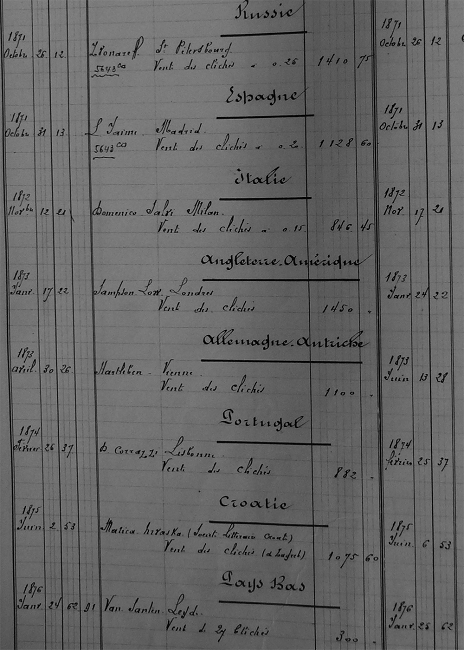 Russie
1871 1871
Octobre 26 12 St Pétersbourg Octobre 26 12
5643 cq Vent des clichés a 0.26 1410 75
Espagne
1871 1871
Octobre 31 13 Madrid Octobre 31 13
5643 cq Vent des clichés a 0.20 1128 60
Italie
1872 1872
12 21 Domenico Salvi Milan. Nov. 17 21
Vent des clichés a 0.15 846 45
Angleterre. Amérique
1873 1873
Janv. 17 22 Sampson Low. Londres Janv 24 22
Vent des clichés 1450 "
Allemagne. Autriche
1873 1873
Avril. 30 26 Hartleben Vienne Juin 13 28
Vent des clichés 1100 "
Portugal
1874 1874
Février 26 37 Lisbonne février 25 37
Vent des clichés 882 "
Croatie
1875 1875
Juin 2 53 Matica hrvaska Juin 6 53
Vent des clichés 1075 60
Pays Bas
1876 1876
Janv. 24 62 91 Van Santen Leyd. Janv 26 62
Vent de 27 Clichés 300 "